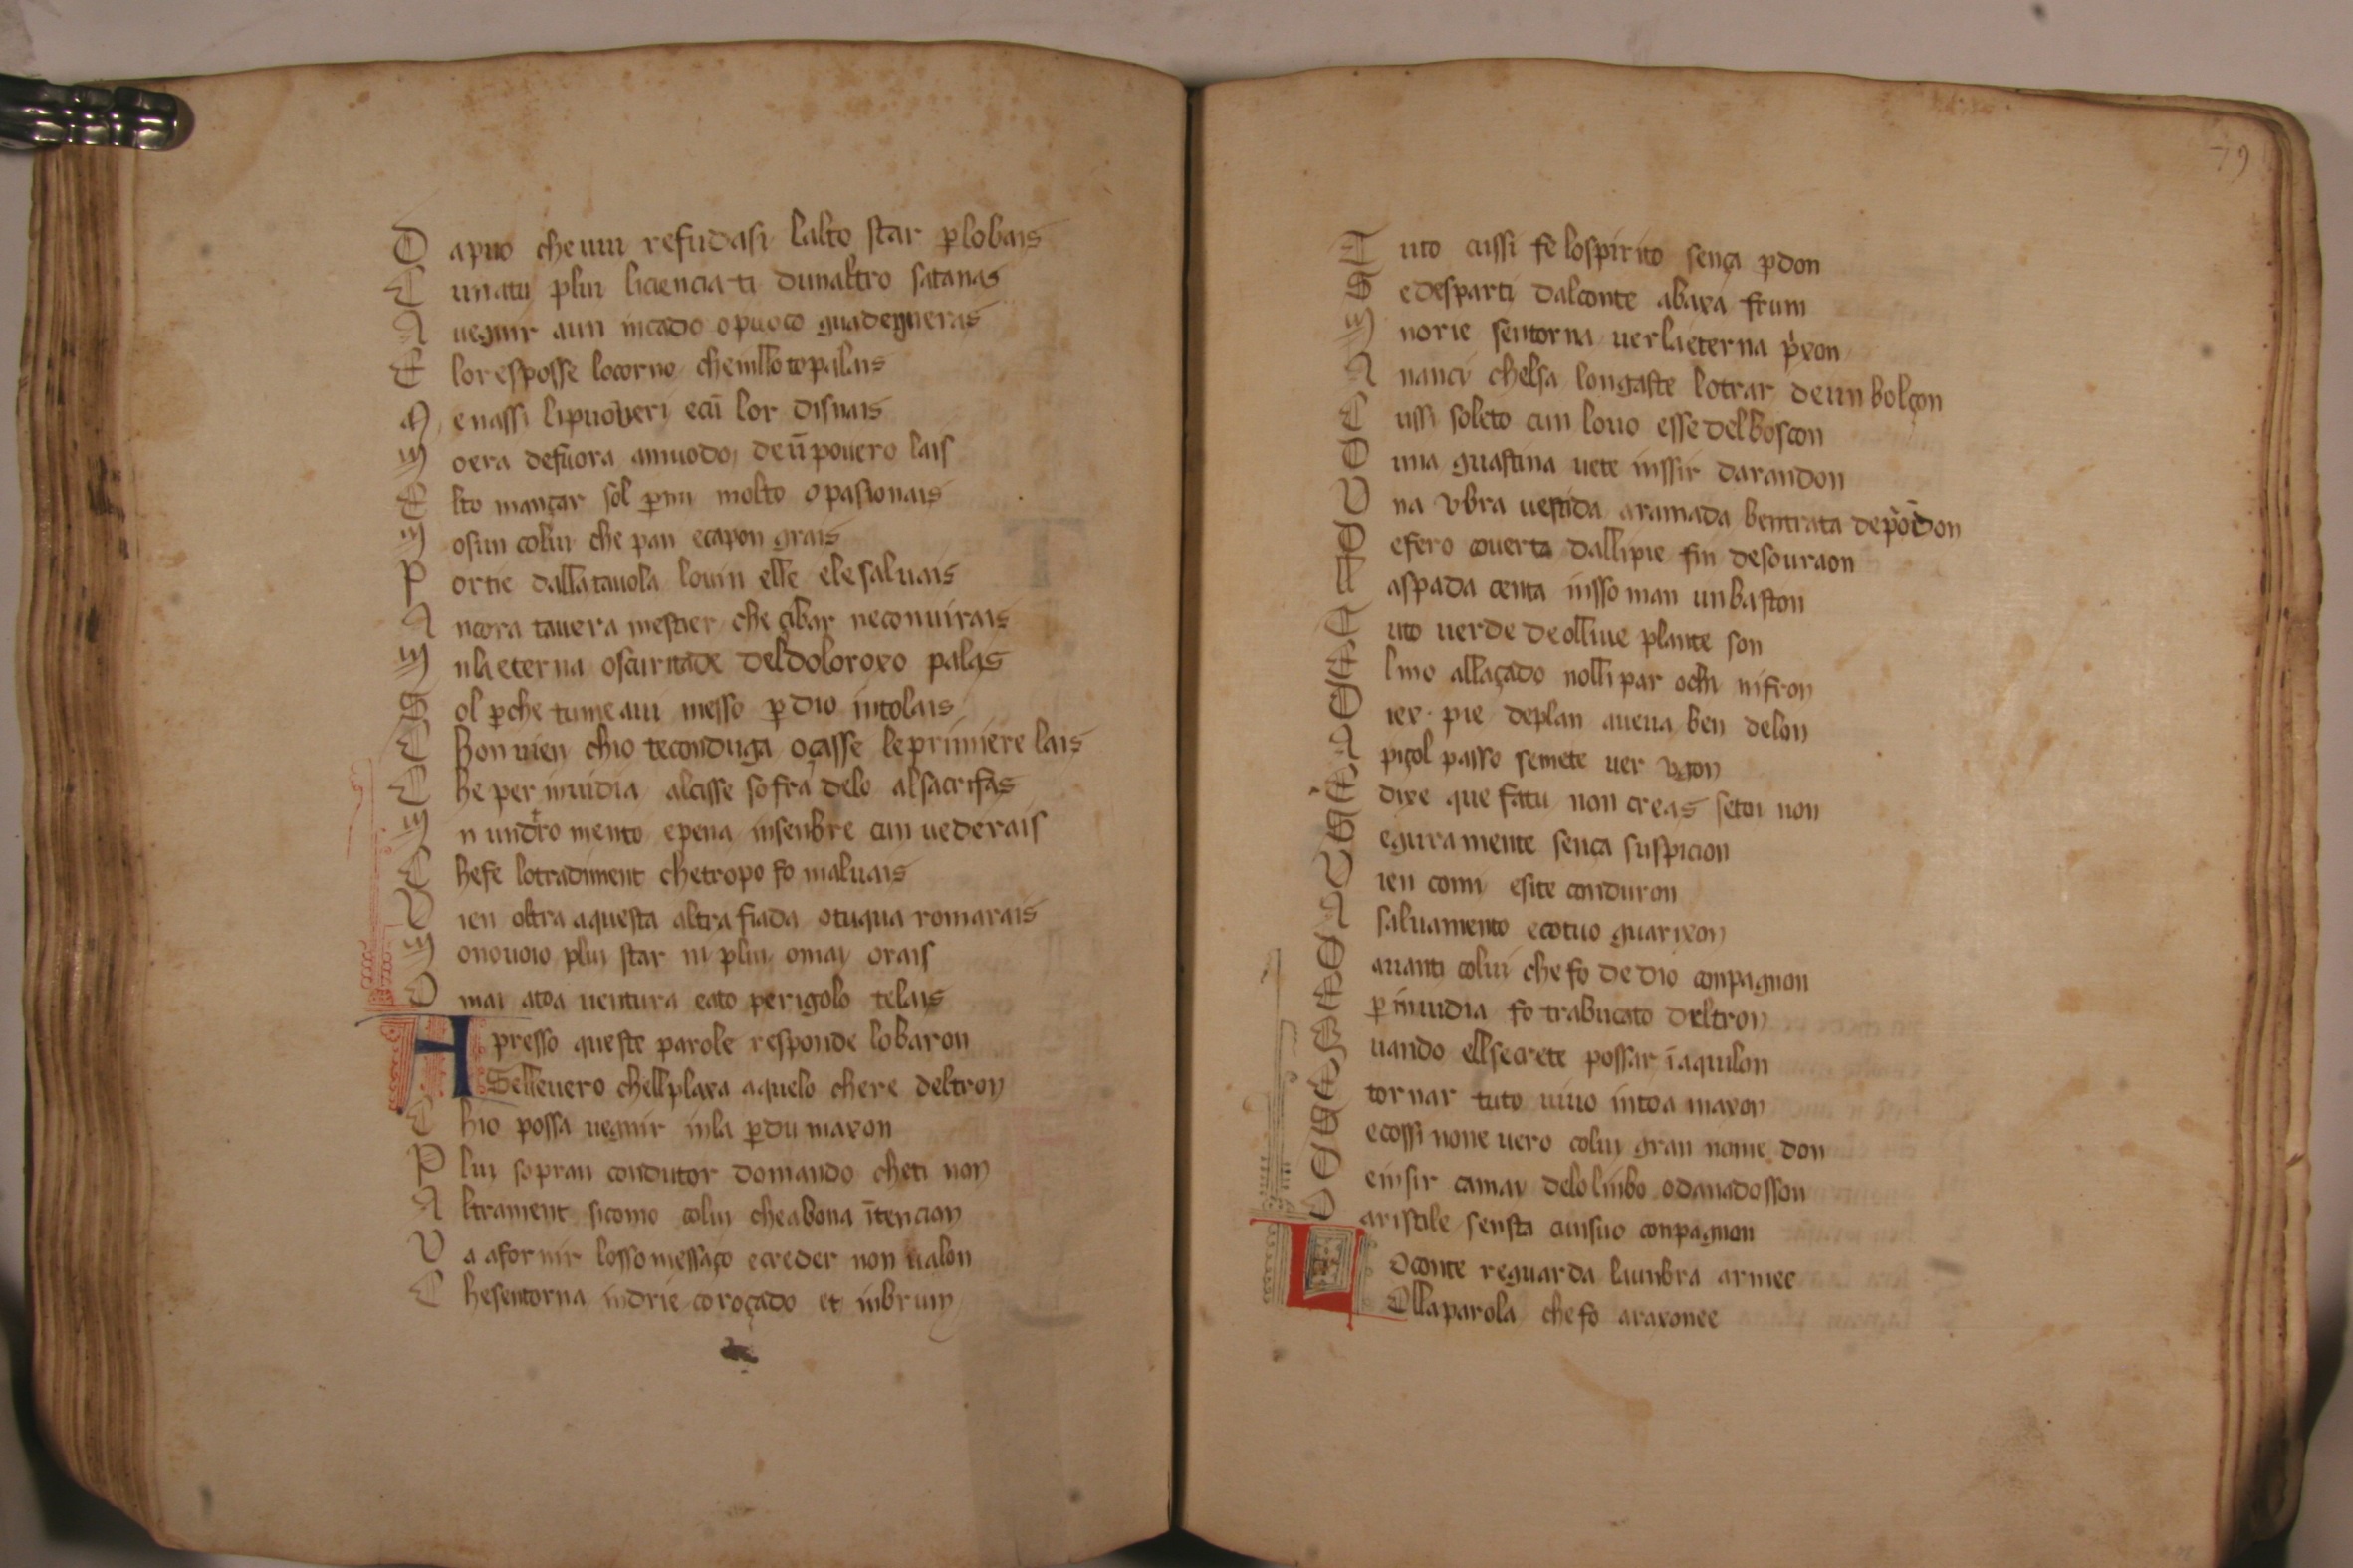 D apuo che uui refudasi lalto star p̱ lobais
C unatu plui licienciati dunaltro satanas
A uegnir aun incado o puoco guadegneras
E lo resposse locorno che inllo topalais
M enassi li puoueri ecū lor disnais
N oera defuora anuodo de ū pouero lais
E lto mançar sol p̱ mi molto o pasionais
N osun colui che pan ecapon grais
P ortie dalla tauola louin elle ele saluais
A ncora tauera mestier che çibar ne conuirais
I nla eterna oscuritade del doloroxo palas
S ol p̱che tu me aui messo p̱ dio intolais
C hon uien chio te conduga o çasse le primiere lais
C he per inuidia alcisse so frar delo al sacrifas
I n un dro mento epena insenbre cun uederais
C hefe lo tradiment che tropo fo maluais
V ien oltra aquesta altra fiada o tuqua romarais
N onouoio plui star ni plui omai orais
O mai atoa uentura eato perigolo telais
A presso queste parole responde lobaron
Sell e uero chell plaxa aquelo chere del tron
C hio possa uegnir inla p̱du maxon
P lui sopran condutor domando cheti non
A ltrament sicomo colui che a bona ītencion
V a afornir losso messaço ecreder non ualon
C he sentorna indrie coroçado et inbrum
79
T uto cussi fe lo spirito sença p̱don
S e desparti dal conte abaxa frum
I ndrie sentorna uer la eterna p̓xon
A nanci chelsa longaste lotrar de un bolçon
C ussi soleto cun louo esse del boscon
D una guastina uete inssir darandon
V na vbra uestida aramada bentrata de p̓odon
D efero couerta dalli pie fin desouraon
L aspada centa insso man un baston
T uto uerde de olliue plante son
E lmo allaçado nolli par ochi nifron
D iex pie deplan aueua ben delon
A piçol passo semete uer vgon
E dixe que fatu non creas setoi non
S eguramente sença suspicion
V ien comi esite conduron
A saluamento ecotuo guarixon
D auanti colui che fo de dio conpagnon
E p̱ inuidia fo trabucato del tron
Q uando ell se crete possar ī aquilon
E tornar tuto uiuo intoa maxon
S ecossi none uero colui gran nome don
D einsir camai delo linbo odanado sson
D aristile sensta cunsuo conpagnon
L o conte reguarda laumbra armee
Ella parola che fo araxonee